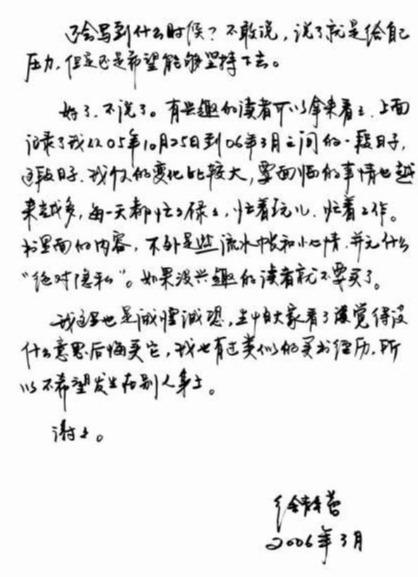 还会写到什么时候？不敢说，说了就是给自己
压力，但是还是希望能够坚持下去。
好了，不说了。有兴趣的读者可以拿来看看，上面
记录了我从05年10月25日到06年3月之间的一段日子，
这段日子，我个人的变化比较大，要面临的事情也越
来越多，每一天都忙忙碌碌，忙着玩儿，忙着工作。
书里面的内容，不外是些流水帐和小心情，并无什么
“绝对隐私”。如果没兴趣的读者就不要买了。
我这里也是诚惶诚恐，生怕大家看了后觉得没
什么意思后悔买它，我也有过类似的买书经历，所
以不希望发生在别人身上。
谢谢。
徐静蕾
2006年3月